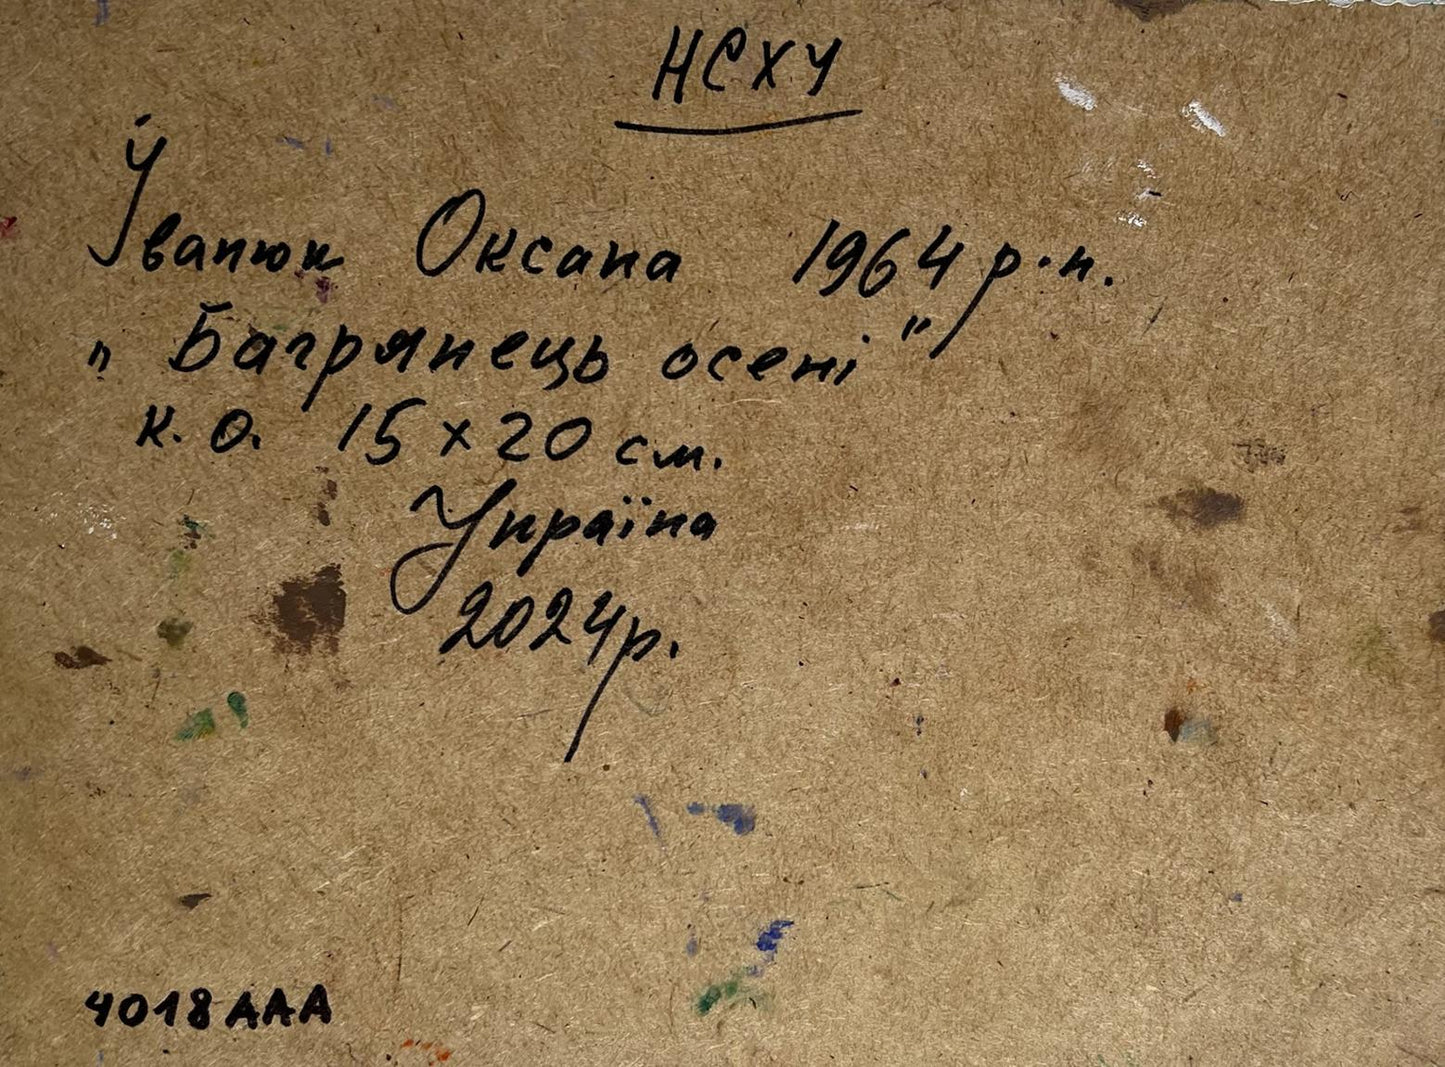 НСХУ
Іванюк Оксана 1964 р.н.
„Багрянець осені"
к.о. 15х20 см.
Україна
2024р.
4018ААА